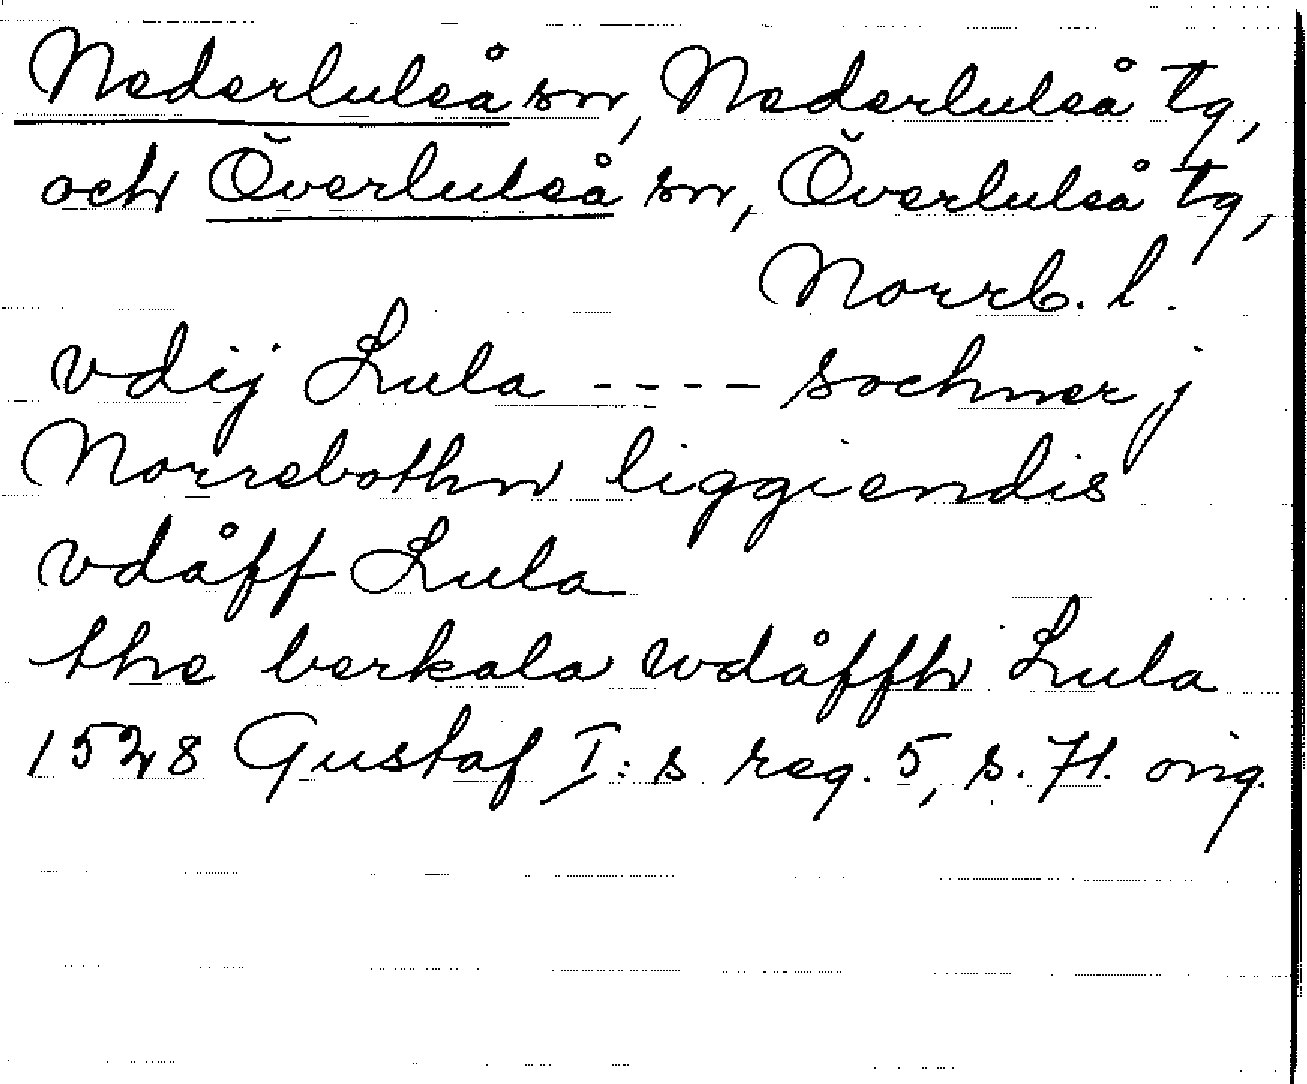 Nederluleå sn, Nederluleå tg,
och Överluleå sn, Överluleå tg,
Norrb. l.
vdij Lula ---- sochner j
Norrebothn liggiendis
vdåff Lula
the berkala wdåffh Lula
1528 Gustaf I:s reg. 5, s. 71. orig.